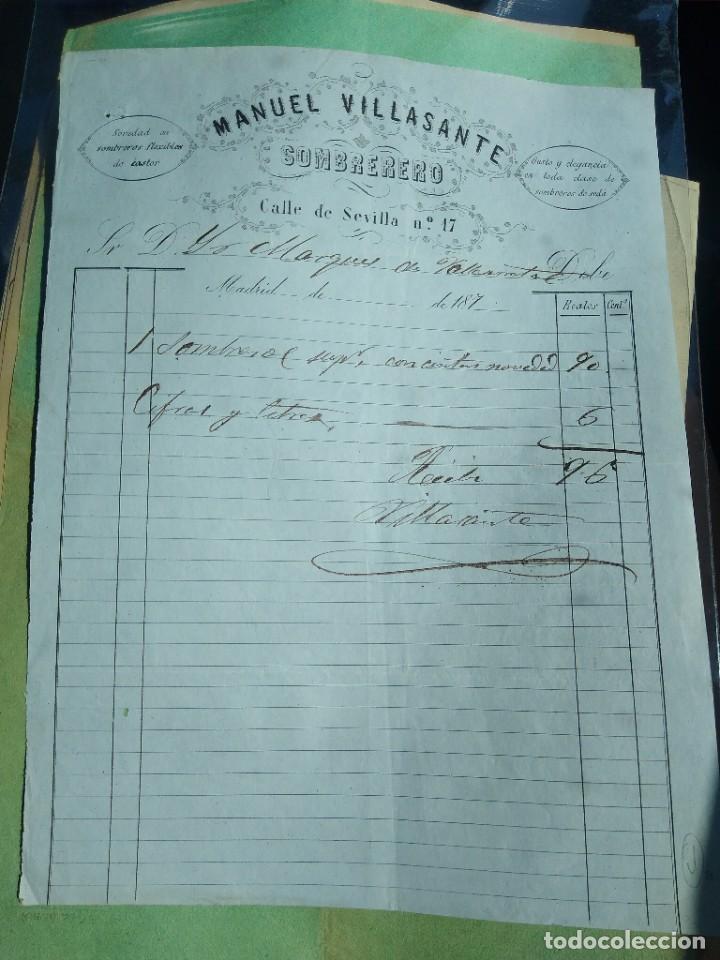 MANUEL VILLASANTE
SOMBRERERO
Calle de Sevilla nº. 17
Novedad en
sombreros flexibles
de castor
Gusto y elegancia
en toda clase de
sombreros de seda
Sr. D. Marques de Debe
Madrid de de 187
Reales Cent.
1 Sombrero con cintas novedad 90
Cifras y letras 6
Recibi 96
Villasante
todocoleccion